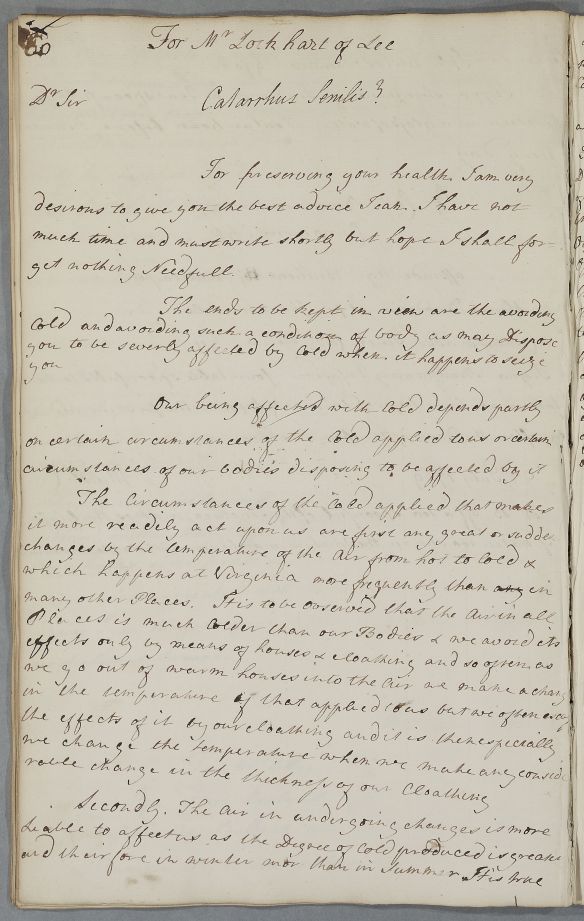 For Mr Lockhart of Lee
Dr Sir Catarrhus Senilis?
For preserving your health I am very
desirous to give you the best advice I can. I have not
much time and must write shortly but hope I shall for-
get nothing Needfull.
The ends to be kept in view are the avoiding
Cold and avoiding such a condition of body as may Dispose
you to be severly affected by Cold when it happens to seize
you
Our being affected with Cold depends partly
on certain circumstances of the Cold applied to us or certain
circumstances of our bodies disposing to be affected by it
The Circumstances of the Cold applied that makes
it more readely act upon us are first any great or sudden
changes by the temperature of the Air from hot to Cold &
which happens at Virginia more frequently than any in
many other Places. It is to be observed that the Air in all
Places is much colder than our Bodies & we avoid its
effects only by means of houses & cloathing and so often as
we go out of warm houses into the Air we make a chang
in the temperature of that applied to us but we often escap
the effects of it by our cloathing and it is then especially
we change the temperature when we make any conside
rable change in the thickness of our Cloathing
Secondly. The Air in undergoing changes is more
Leable to affect us as the Degree of Cold produced is greater
and therfore in winter mor than in Summer It is true